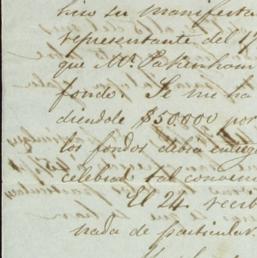 hizo su manifesta
representante del 
que Mr. Pakenham
fondo. Se me ha
diendole $50.000 por
los fondos
celebrar tal conven
El 24 recib
nada de particular.